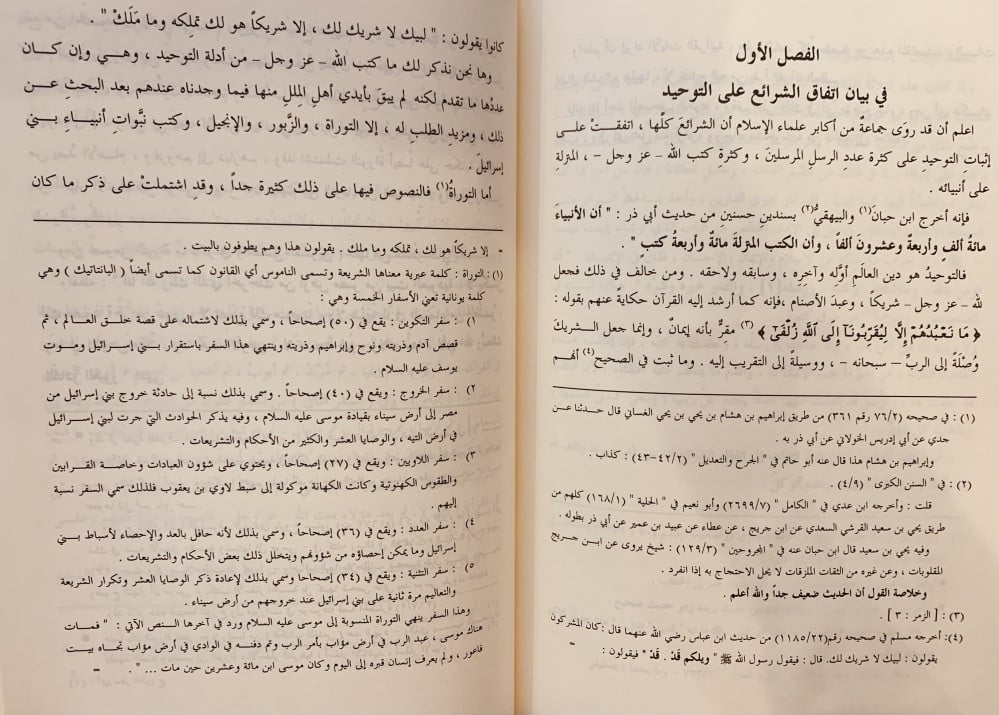 الفصل الأول
في بيان اتفاق الشرائع على التوحيد
اعلم أن قد روَى جماعةٌ من أكابر علماء الإسلام أن الشرائعَ كلَّها ، اتفقتْ على
إثباتِ التوحيدِ على كثرة عدد الرسلِ المرسلينَ ، وكثرةِ كتب الله – عز وجل – ، المنزلة
على أنبيائه .
فإنه أخرج ابن حبانَ(١) والبيهقيُّ(٢) بسندينِ حسنينِ من حديث أبي ذر : " أن الأنبياءَ
مائةُ ألفٍ وأربعةٌ وعشرونَ ألفاً ، وأن الكتب المنزلةَ مائةٌ وأربعةُ كتبٍ " .
فالتوحيدُ هو دين العالَمِ أوَّلِه وآخرِه ، وسابقه ولاحقه . ومن خالف في ذلك فجعل
لله – عز وجل – شريكاً ، وعبدَ الأصنام ، فإنه كما أرشد إليه القرآن حكايةً عنهم بقوله :
﴿ مَا نَعْبُدُهُمْ إِلَّا لِيُقَرِّبُونَآ إِلَى ٱللَّهِ زُلْفَىٰٓ ﴾ (٣) مقِرٌّ بأنه إيمانٌ ، وإنما جعل الشريكَ
وُصْلَةً إلى الربِّ – سبحانه – ، ووسيلةً إلى التقريب إليه . وما ثبت في الصحيح(٤) أنهم
(١) : في صحيحه (٧٦/٢ رقم ٣٦١) من طريق إبراهيم بن هشام بن يحي بن يحي الغساني قال حدثنا عن
جدي عن أبي إدريس الخولاني عن أبي ذر به .
وإبراهيم بن هشام هذا قال عنه أبو حاتم في " الجرح والتعديل " (٤٢/٢–٤٣) : كذاب .
(٢) : في " السنن الكبرى " (٤/٩) .
قلت : وأخرجه ابن عدي في " الكامل " (٢٦٩٩/٧) وأبو نعيم في " الحلية " (١٦٨/١) كلهم من
طريق يحي بن سعيد القرشي السعدي عن ابن جريج ، عن عطاء عن عبيد بن عمير عن أبي ذر بطوله .
وفيه يحي بن سعيد قال ابن حبان عنه في " المجروحين " (١٢٩/٣) : شيخ يروى عن ابن جريج
المقلوبات ، وعن غيره من الثقات الملزقات لا يحل الاحتجاج به إذا انفرد .
وخلاصة القول أن الحديث ضعيف جداً والله أعلم .
(٣) : [ الزمر : ٣ ] .
(٤): أخرجه مسلم في صحيحه رقم(١١٨٥/٢٢) من حديث ابن عباس رضي الله عنهما قال : كان المشركون
يقولون : لبيك لا شريك لك. قال : فيقول رسول الله ﷺ " ويلكم قَدْ . قَدْ " فيقولون : =
كانوا يقولون : " لبيك لا شريك لك ، إلا شريكاً هو لك تملِكه وما مَلَكْ " .
وها نحن نذكر لك ما كتب الله – عز وجل – من أدلة التوحيد ، وهي وإن كان
عددُها ما تقدم لكنه لم يبقَ بأيدي أهلِ المِللِ منها فيما وجدناه عندهم بعد البحثِ عن
ذلك ، ومزيدِ الطلبِ له ، إلا التوراة ، والزَّبور ، والإنجيل ، وكتب نبُّواتِ أنبياءِ بني
إسرائيلَ .
أما التوراةُ(١) فالنصوص فيها على ذلك كثيرة جداً ، وقدِ اشتملتْ على ذكر ما كان
= إلا شريكاً هو لك ، تملكه وما ملك . يقولون هذا وهم يطوفون بالبيت .
(١): التوراة : كلمة عبرية معناها الشريعة وتسمى الناموس أي القانون كما تسمى أيضاً ( البانتاتيك ) وهي
كلمة يونانية تعني الأسفار الخمسة وهي :
١) : سفر التكوين : يقع في (٥٠) إصحاحاً ، وسمي بذلك لاشتماله على قصة خلق العالم ، ثم
قصص آدم وذريته ونوح وإبراهيم وذريته وينتهي هذا السفر باستقرار بني إسرائيل وموت
يوسف عليه السلام .
٢) : سفر الخروج : ويقع في (٤٠) إصحاحاً . سمي بذلك نسبة إلى حادثة خروج بني إسرائيل من
مصر إلى أرض سيناء بقيادة موسى عليه السلام ، وفيه يذكر الحوادث التي جرت لبني إسرائيل
في أرض التيه ، والوصايا العشر والكثير من الأحكام والتشريعات .
٣) : سفر اللاويين : ويقع في (٢٧) إصحاحاً ، ويحتوي على شؤون العبادات وخاصة القرابين
والطقوس الكهنوتية وكانت الكهانة موكولة إلى سبط لاوي بن يعقوب فلذلك سمي السفر نسبة
إليهم .
٤) : سفر العدد : ويقع في (٣٦) إصحاحاً ، وسمي بذلك لأنه حافل بالعد والإحصاء لأسباط بني
إسرائيل وما يمكن إحصاؤه من شؤونهم ويتخلل ذلك بعض الأحكام والتشريعات .
٥) : سفر التثنية : ويقع في (٣٤) إصحاحا وسمي بذلك لإعادة ذكر الوصايا العشر وتكرار الشريعة
والتعاليم مرة ثانية على بني إسرائيل عند خروجهم من أرض سيناء .
وهذا السفر ينهي التوراة المنسوبة إلى موسى عليه السلام ورد في آخرها النص الآتي : " فمات
هناك موسى ، عبد الرب في أرض مؤاب بأمر الرب وتم دفنه في الوادي في أرض مؤاب تجاه بيت
فاعور ، ولم يعرف إنسان قبره إلى اليوم وكان موسى ابن مائة وعشرين حين مات ... " =